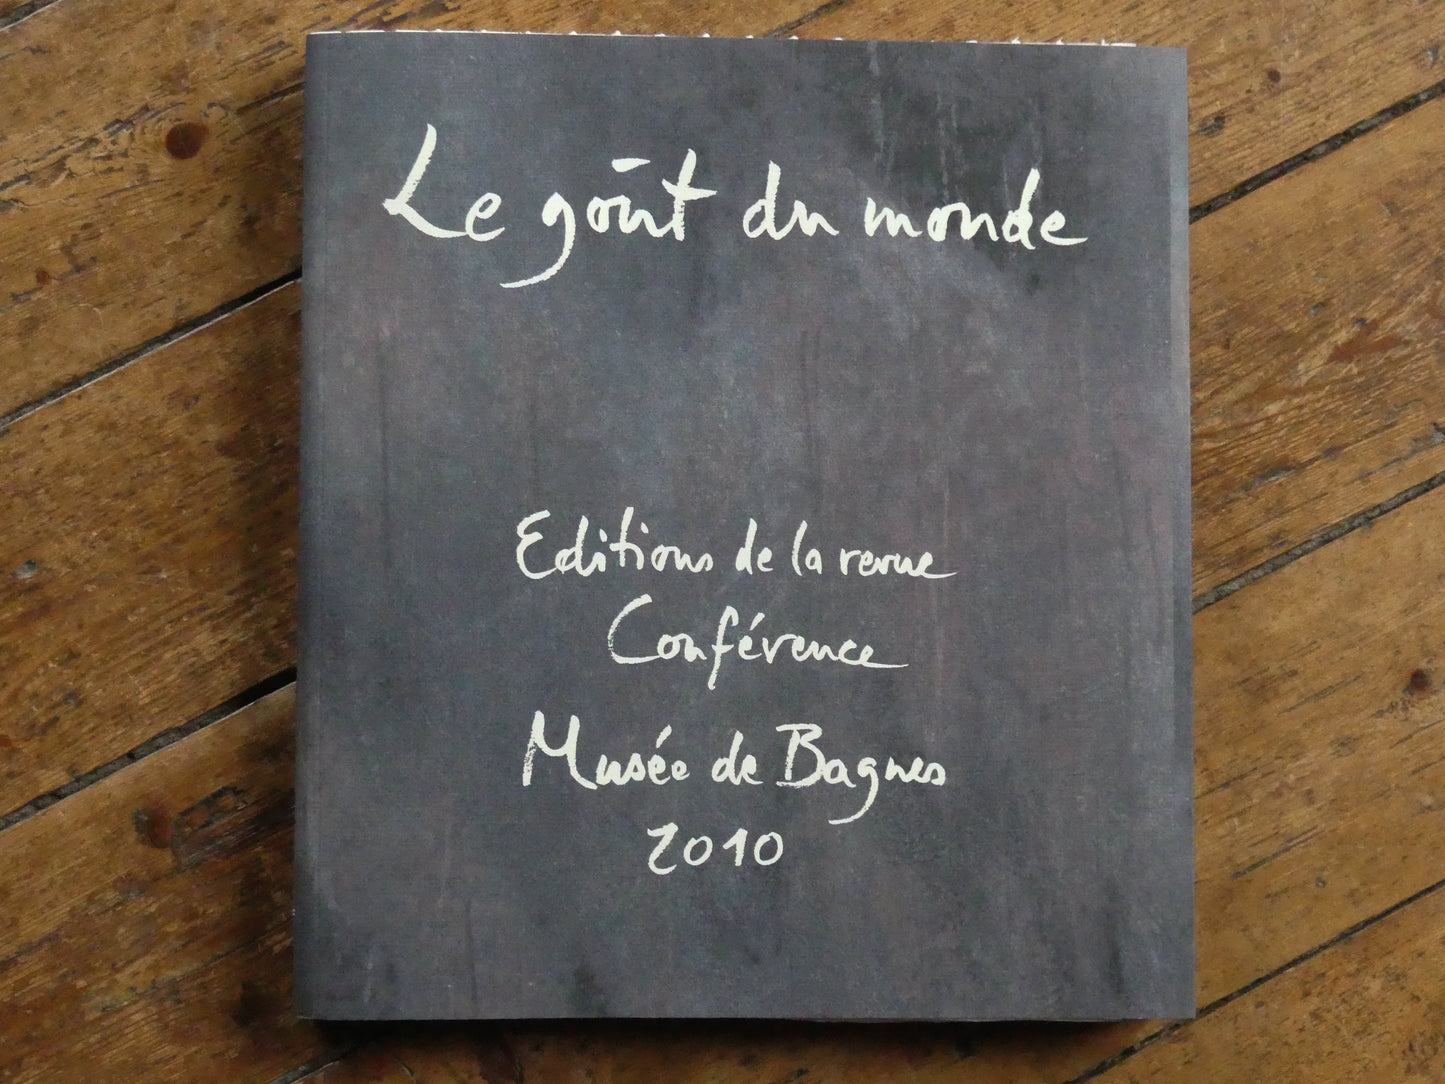 Le goût du monde
Editions de la revue
Conférence
Musée de Bagnes
2010